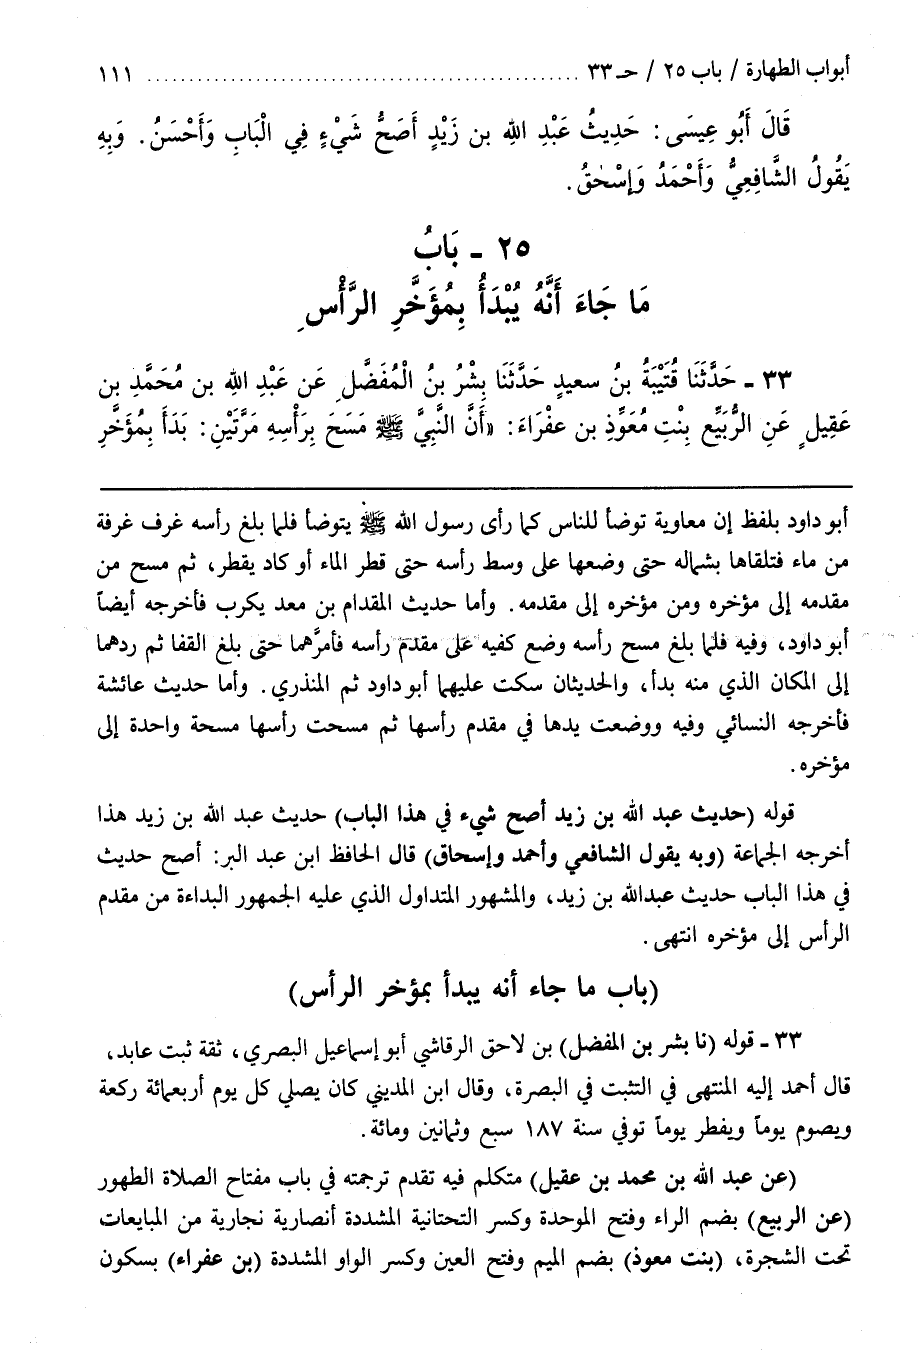 أبواب الطهارة / باب ٢٥ / حـ ٣٣ .................................................... ١١١
قَالَ أَبُو عِيسَى: حَدِيثُ عَبْدِ اللهِ بن زَيْدٍ أَصَحُّ شَيْءٍ فِي الْبَابِ وَأَحْسَنُ. وَبِهِ
يَقُولُ الشَّافِعِيُّ وَأَحْمَدُ وَإِسْحٰقُ.
٢٥ ـ بَابُ
مَا جَاءَ أَنَّهُ يُبْدَأُ بِمُؤَخَّرِ الرَّأْسِ
٣٣ ـ حَدَّثَنَا قُتَيْبَةُ بنُ سعيدٍ حَدَّثَنَا بِشْرُ بنُ الْمُفَضَّلِ عَن عَبْدِ اللهِ بن مُحَمَّدِ بن
عَقِيلٍ عَنِ الرُّبَيِّع بِنْتِ مُعَوِّذِ بن عَفْرَاءَ: «أَنَّ النَّبِيَّ ﷺ مَسَحَ بِرَأْسِهِ مَرَّتَيْنِ: بَدَأَ بِمُؤَخَّرِ
أبو داود بلفظ إن معاوية توضأ للناس كما رأى رسول الله ﷺ يتوضأ فلما بلغ رأسه غرف غرفة
من ماء فتلقاها بشماله حتى وضعها على وسط رأسه حتى قطر الماء أو كاد يقطر، ثم مسح من
مقدمه إلى مؤخره ومن مؤخره إلى مقدمه. وأما حديث المقدام بن معد يكرب فأخرجه أيضاً
أبو داود، وفيه فلما بلغ مسح رأسه وضع كفيه على مقدم رأسه فأمرَّهما حتى بلغ القفا ثم ردهما
إلى المكان الذي منه بدأ، والحديثان سكت عليهما أبو داود ثم المنذري. وأما حديث عائشة
فأخرجه النسائي وفيه ووضعت يدها في مقدم رأسها ثم مسحت رأسها مسحة واحدة إلى
مؤخره.
قوله (حديث عبد الله بن زيد أصح شيء في هذا الباب) حديث عبد الله بن زيد هذا
أخرجه الجماعة (وبه يقول الشافعي وأحمد وإسحاق) قال الحافظ ابن عبد البر: أصح حديث
في هذا الباب حديث عبدالله بن زيد، والمشهور المتداول الذي عليه الجمهور البداءة من مقدم
الرأس إلى مؤخره انتهى.
(باب ما جاء أنه يبدأ بمؤخر الرأس)
٣٣ ـ قوله (نا بشر بن المفضل) بن لاحق الرقاشي أبو إسماعيل البصري، ثقة ثبت عابد،
قال أحمد إليه المنتهى في التثبت في البصرة، وقال ابن المديني كان يصلي كل يوم أربعمائة ركعة
ويصوم يوماً ويفطر يوماً توفي سنة ١٨٧ سبع وثمانين ومائة.
(عن عبد الله بن محمد بن عقيل) متكلم فيه تقدم ترجمته في باب مفتاح الصلاة الطهور
(عن الربيع) بضم الراء وفتح الموحدة وكسر التحتانية المشددة أنصارية نجارية من المبايعات
تحت الشجرة، (بنت معوذ) بضم الميم وفتح العين وكسر الواو المشددة (بن عفراء) بسكون